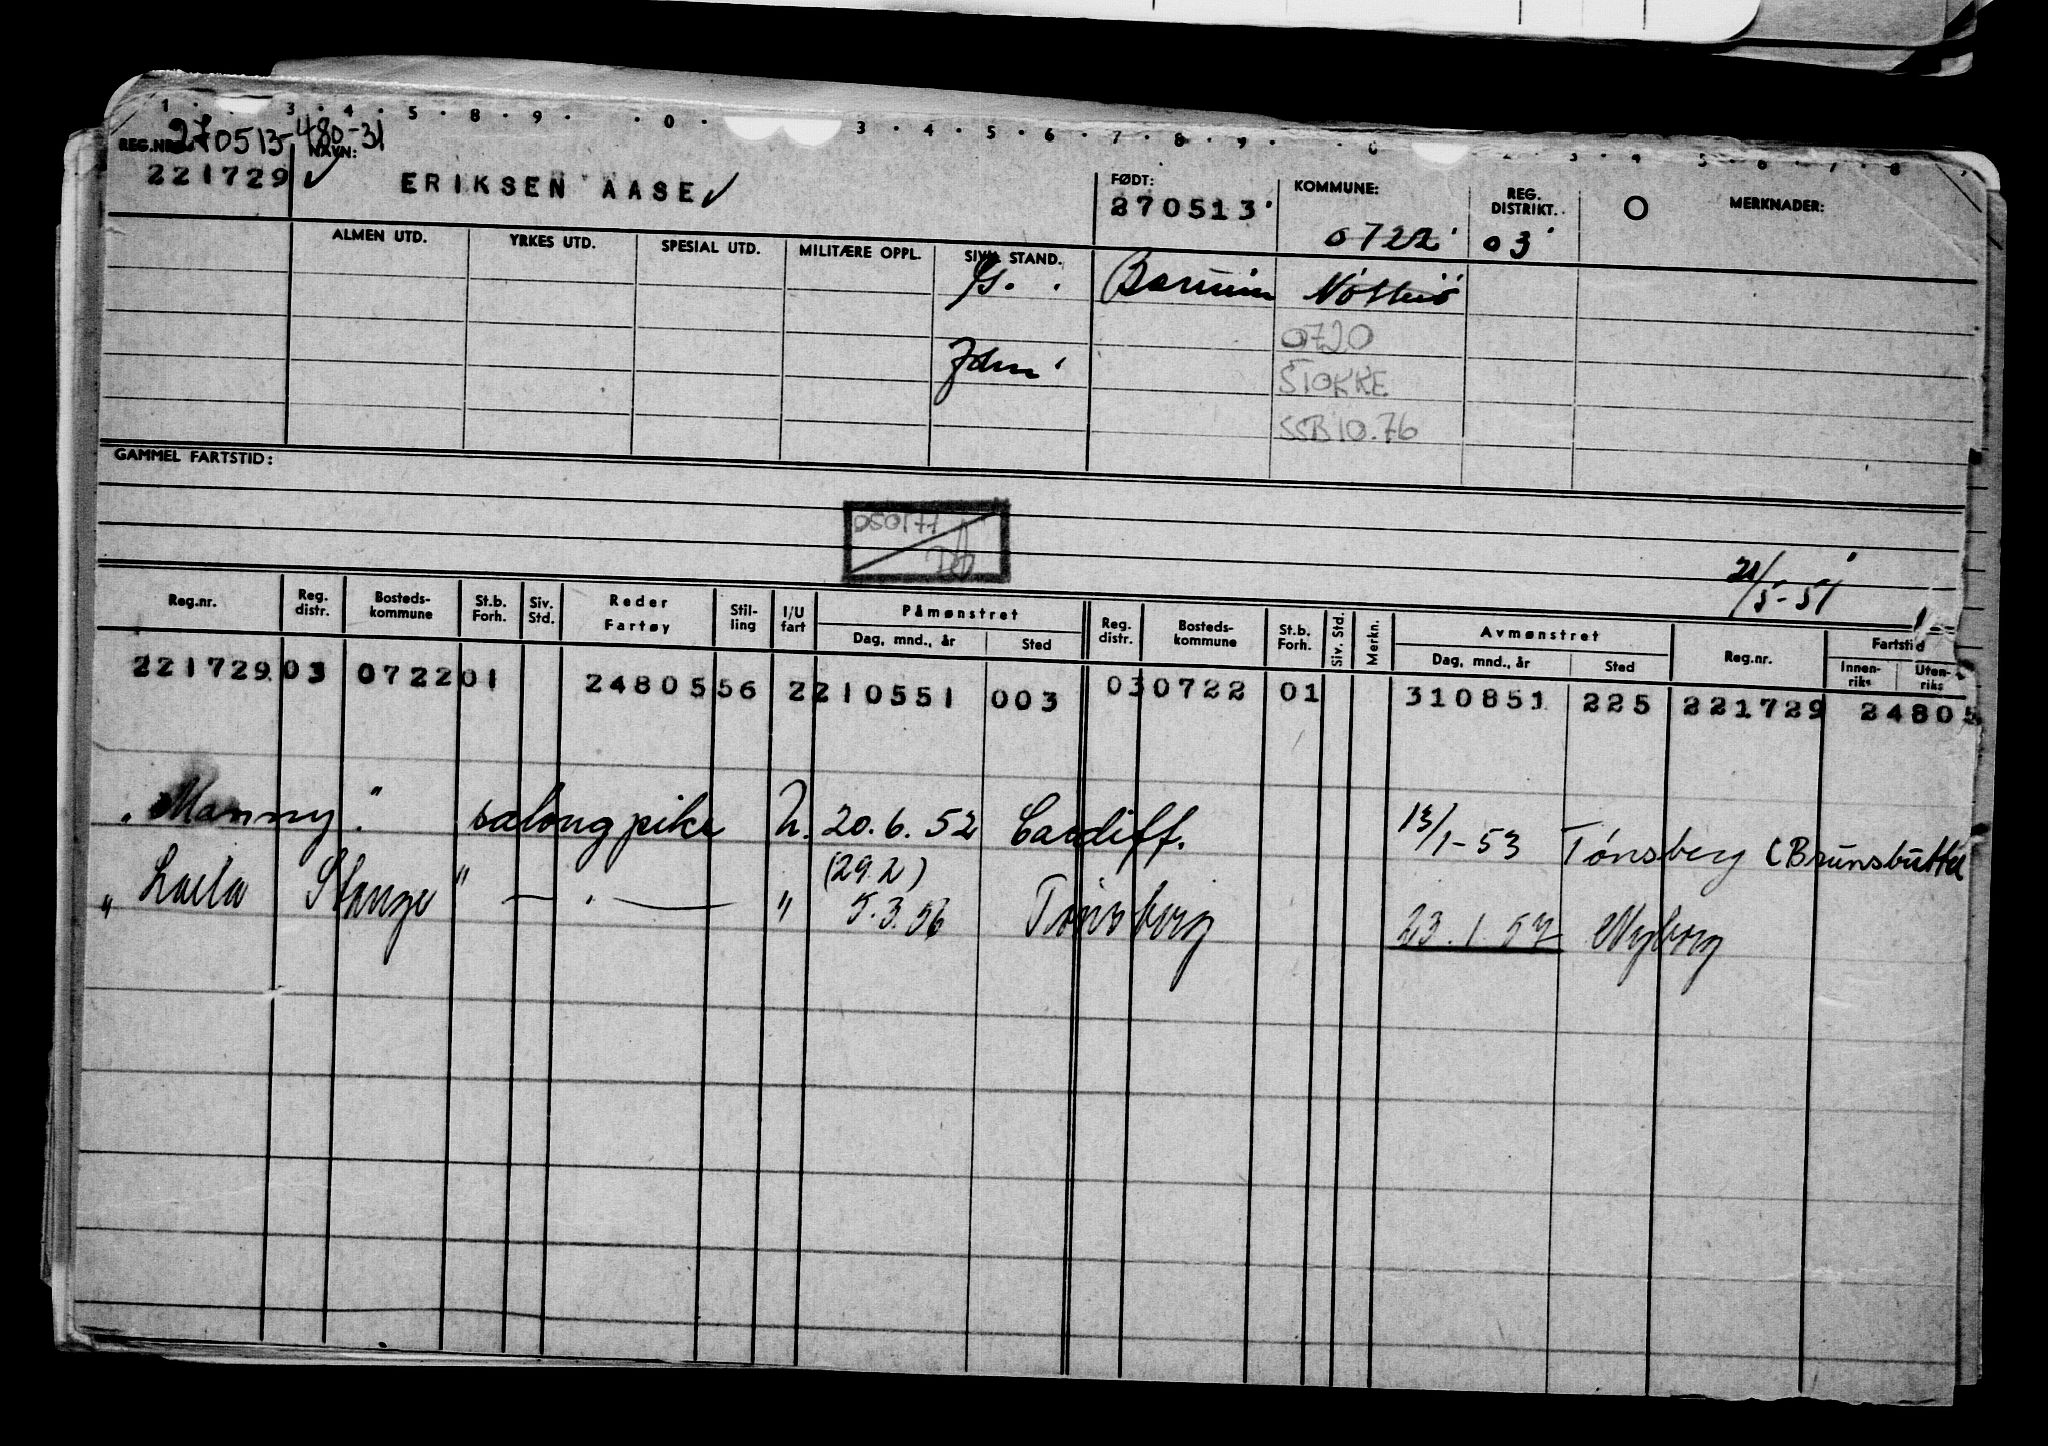 1 · 3 · 4 · 5 · 8 · 9 · · 0 · 3 · 4 · 5 · 6 · 7 · 8 · 9 · · 0 2 · 3 · 4 · 5 · 6 · 7 · 8
270513-480-31
REG.NR. NAVN: FØDT: KOMMUNE: REG. DISTRIKT. O MERKNADER:
221729 ✓ ERIKSEN AASE ✓ 270513 0722 03
ALMEN UTD. YRKES UTD. SPESIAL UTD. MILITÆRE OPPL. SIVIL STAND.
G. Nøtterø
0720
STOKKE
SSB 10.76
GAMMEL FARTSTID:
050177
21/5-51
Reg.nr. Reg. distr. Bosteds-kommune St.b. Forh. Siv. Std. Reder Fartøy Stil-ling I/U fart Påmønstret Reg. distr. Bosteds-kommune St.b. Forh. Siv. Std. Merkn. Avmønstret Reg.nr. Fartstid
Dag, mnd., år Sted Dag, mnd., år Sted Innen-riks Uten-riks
221729 03 0722 01 24805 56 2 210551 003 03 0722 01 310851 225 221729 24805
"Manny" salongpike U. 20.6.52 Cardiff. 13/1-53 Tønsberg (Brunsbüttel
(29.2)
"Laila Stange" — " — " 5.3.56 Tønsberg 23.1.57 Nyborg